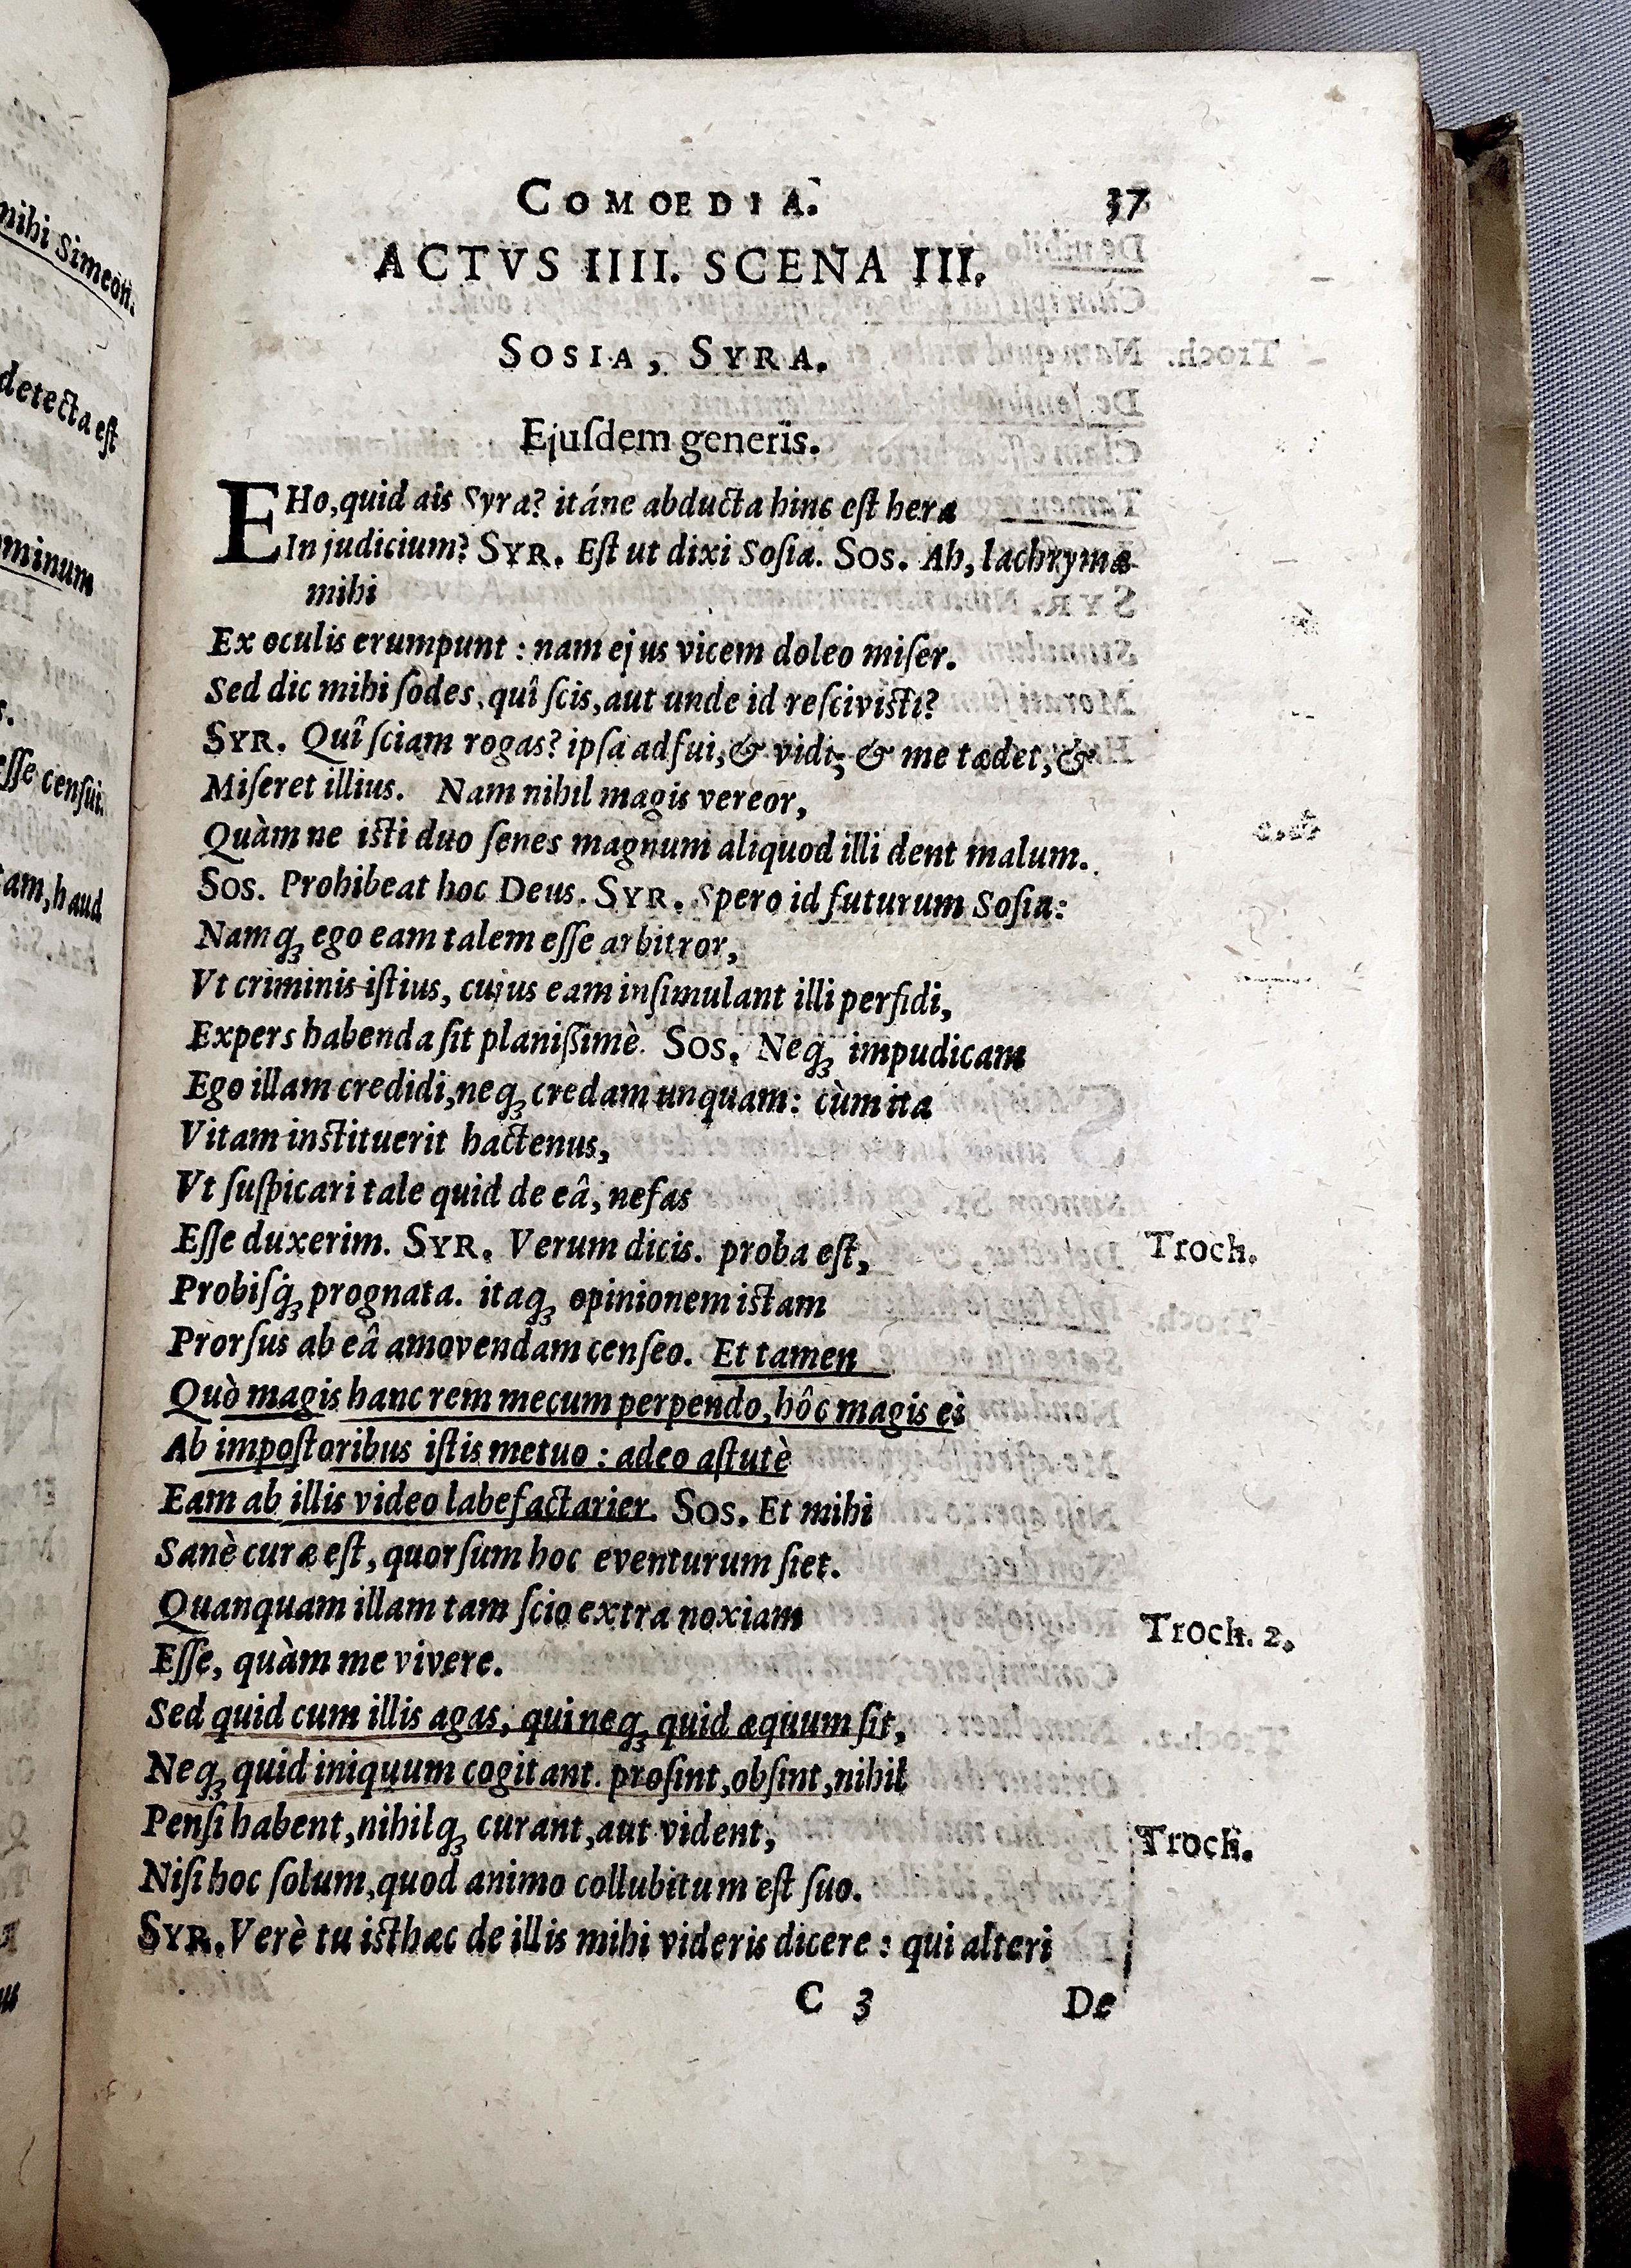 COMOEDIA. 37
ACTVS IIII. SCENA III.
SOSIA, SYRA.
Ejuſdem generis.
EHo, quid ais Syra? itáne abducta hinc eſt hera
In judicium? SYR. Eſt ut dixi Soſia. SOS. Ah, lachrymæ
mihi
Ex oculis erumpunt : nam ejus vicem doleo miſer.
Sed dic mihi ſodes, quî ſcis, aut unde id reſcivisti?
SYR. Quî ſciam rogas? ipſa adfui, & vidi; & me tædet, &
Miſeret illius. Nam nihil magis vereor,
Quàm ne isti duo ſenes magnum aliquod illi dent malum.
SOS. Prohibeat hoc Deus. SYR. Spero id futurum Soſia:
Namq; ego eam talem eſſe arbitror,
Vt criminis iſtius, cujus eam inſimulant illi perfidi,
Expers habenda ſit planiſſimè. SOS. Neq; impudicam
Ego illam credidi, neq; credam unquam: cùm ita
Vitam instituerit hactenus,
Vt ſuſpicari tale quid de eâ, nefas
Eſſe duxerim. SYR. Verum dicis. proba eſt, Troch.
Probiſq; prognata. itaq; opinionem istam
Prorſus ab eâ amovendam cenſeo. Et tamen
Quò magis hanc rem mecum perpendo, hôc magis ei
Ab impoſtoribus iſtis metuo : adeo aſtutè
Eam ab illis video labefactarier. SOS. Et mihi
Sanè curæ eſt, quorſum hoc eventurum ſiet.
Quanquam illam tam ſcio extra noxiam Troch. 2.
Eſſe, quàm me vivere.
Sed quid cum illis agas, qui neq; quid æquum ſit,
Neq; quid iniquum cogitant. proſint, obſint, nihil
Penſi habent, nihilq; curant, aut vident, Troch.
Niſi hoc ſolum, quod animo collubitum eſt ſuo.
SYR. Verè tu isthæc de illis mihi videris dicere : qui alteri
C 3 De
nihi Simeon.
detecta eſt
minum
s.
eſſe cenſui.
tam, haud